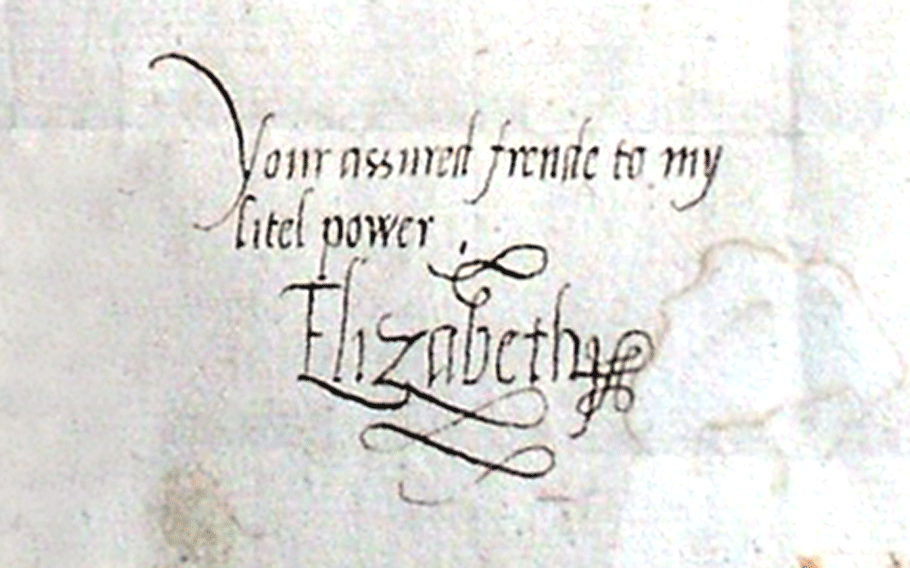 Your assured frende to my
litel power
Elizabeth